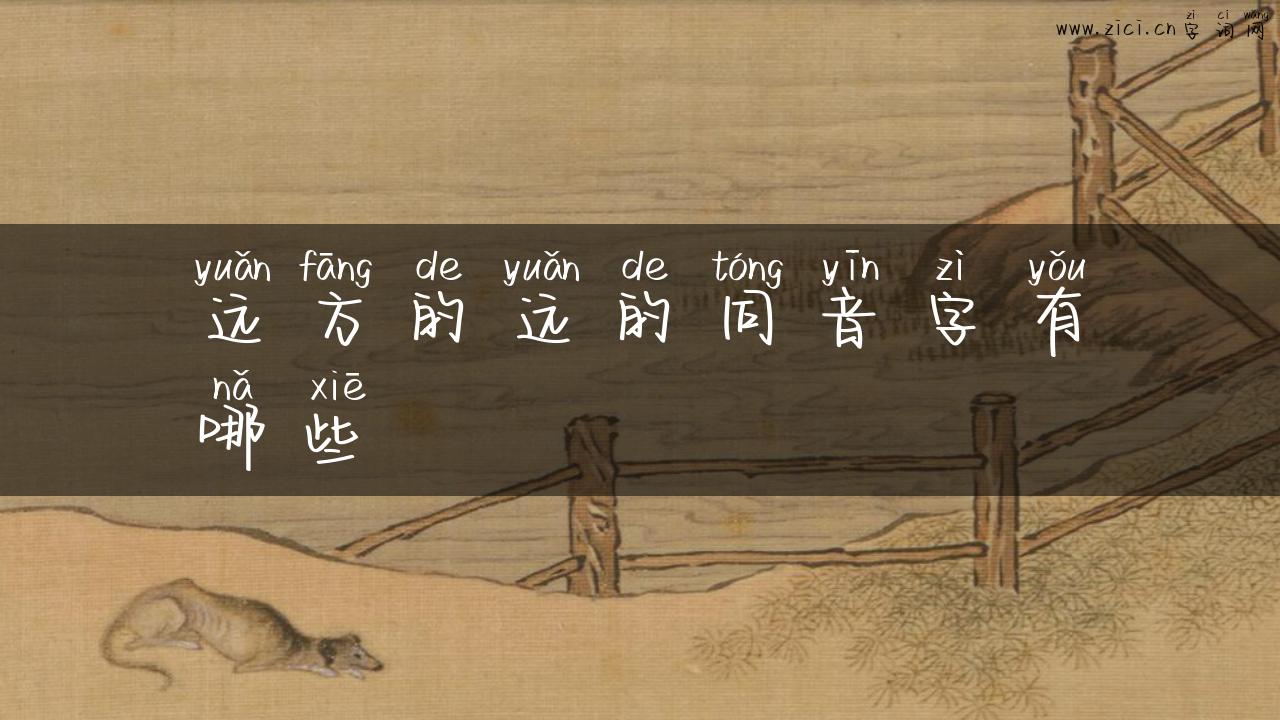 zì cí wǎng
www.zici.cn 字词网
yuǎn fāng de yuǎn de tóng yīn zì yǒu
远方的远的同音字有
nǎ xiē
哪些